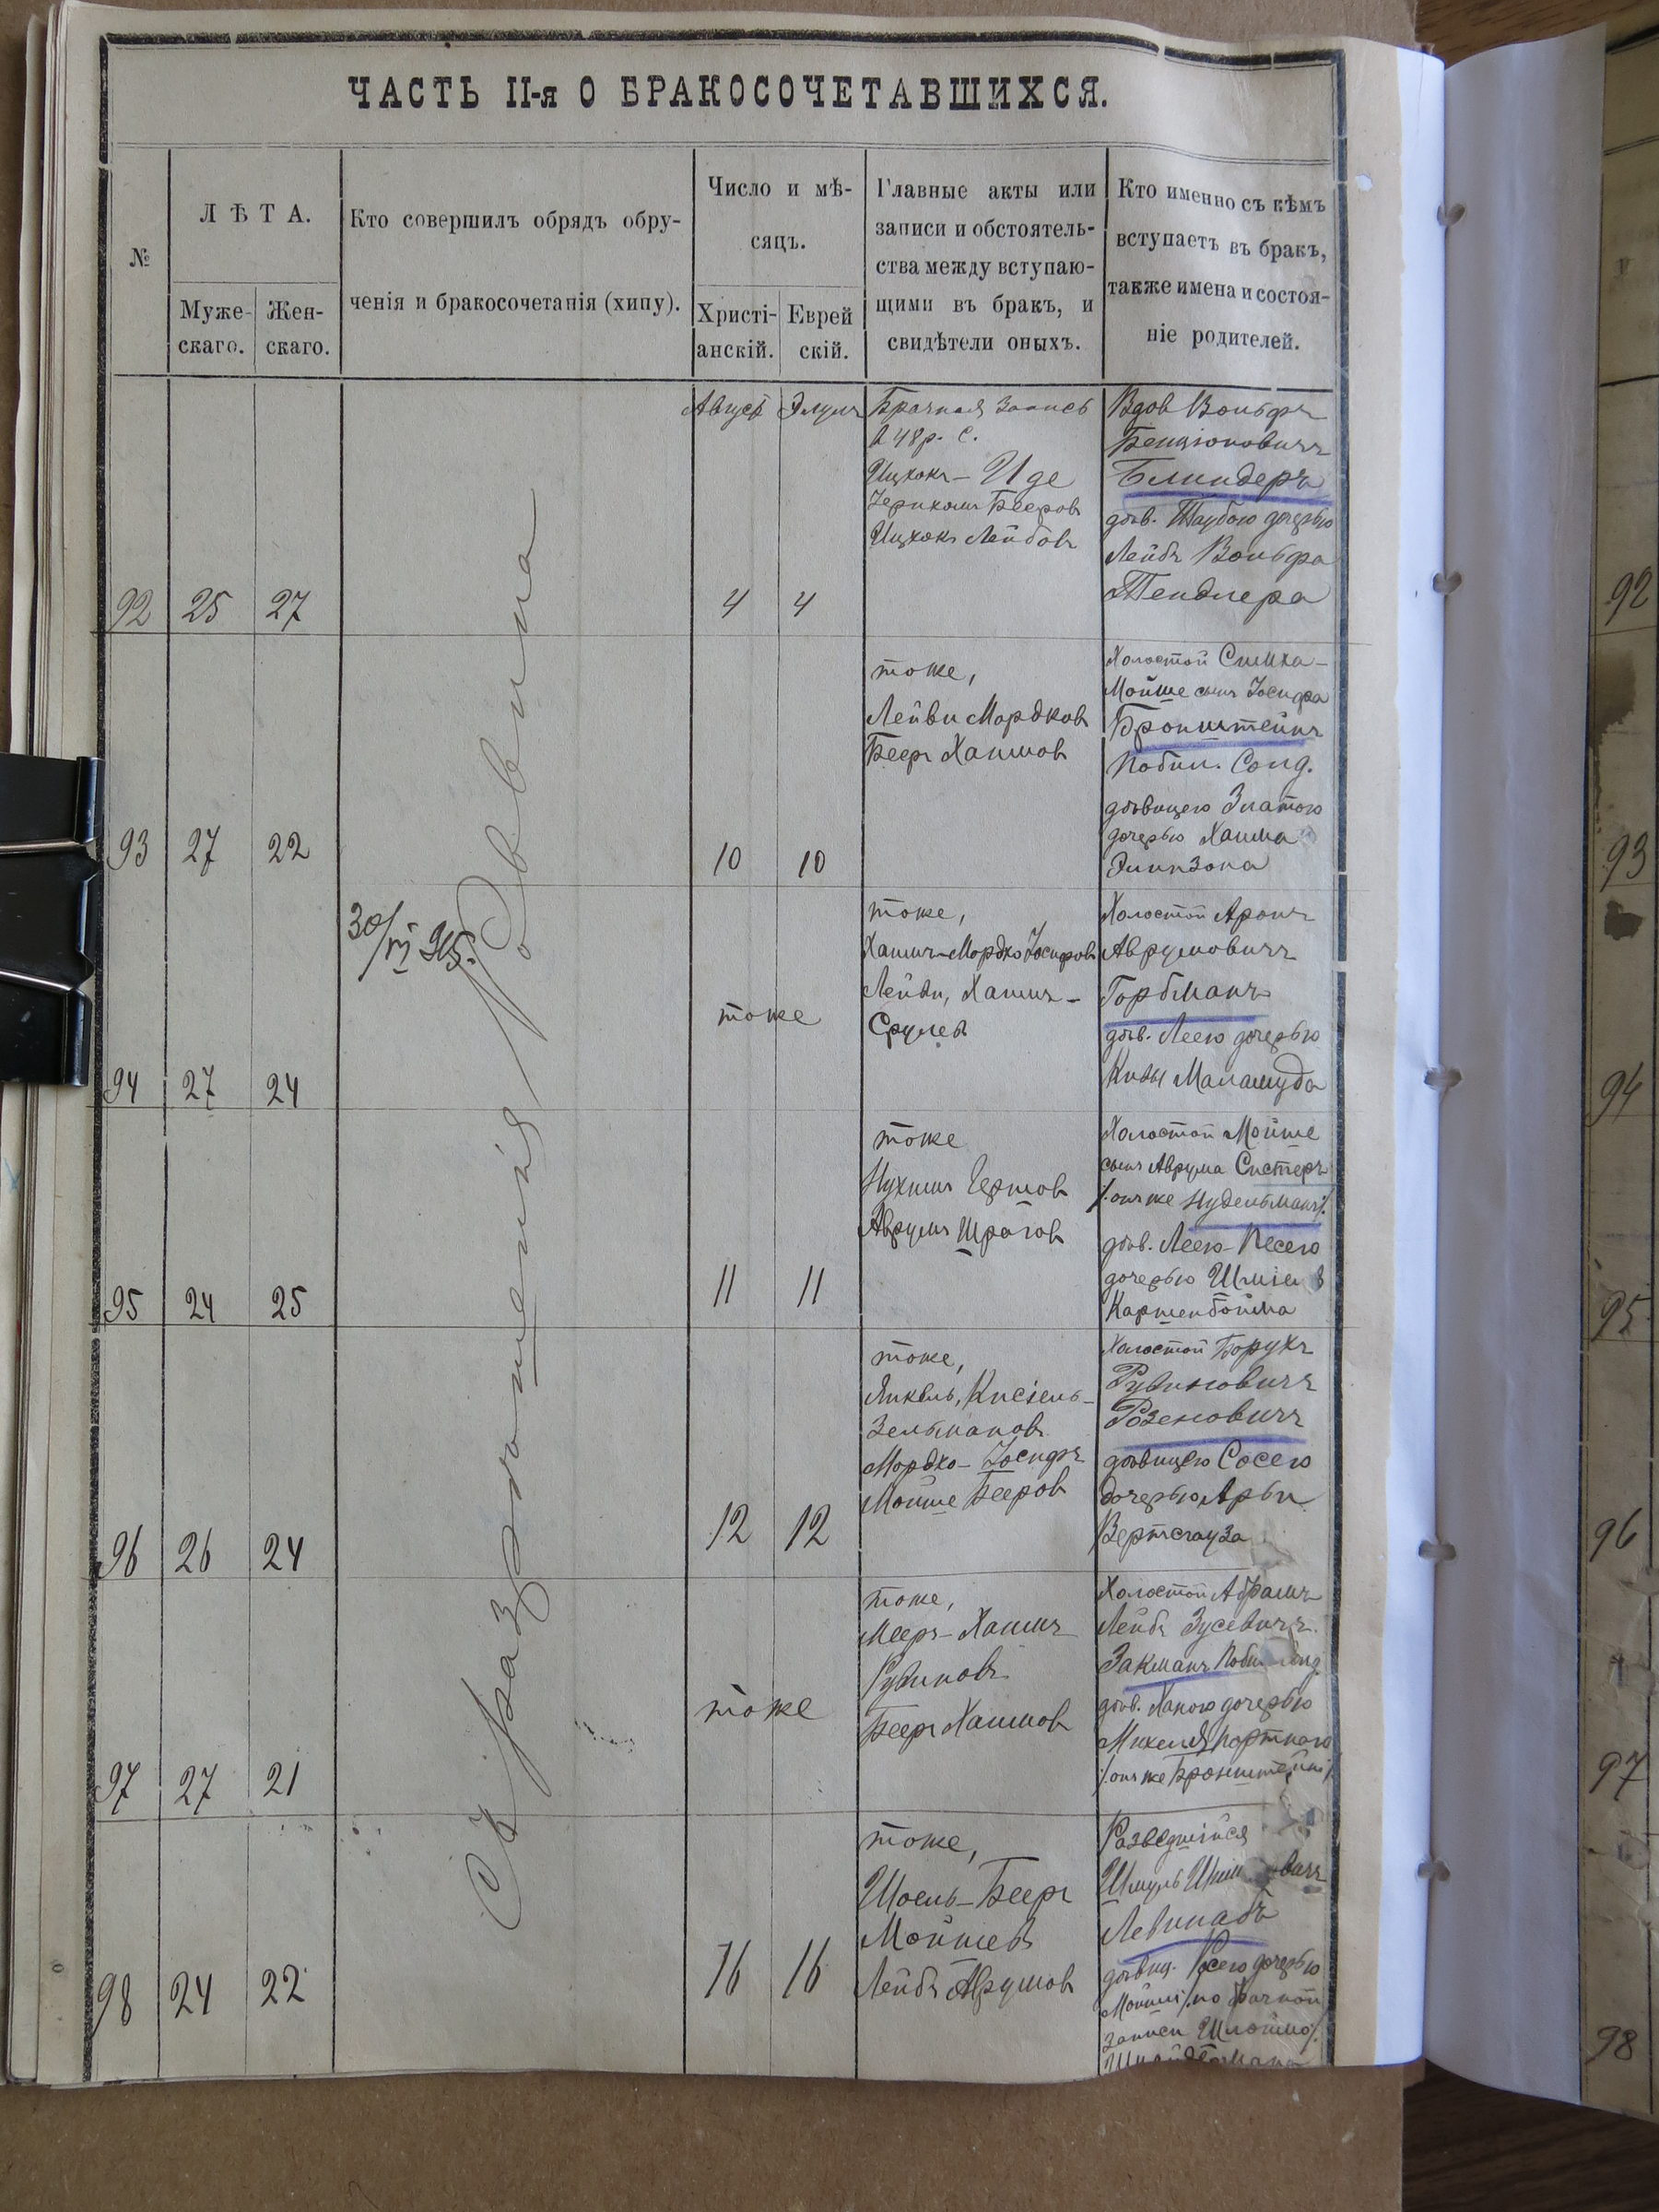 ЧАСТЬ II-я О БРАКОСОЧЕТАВШИХСЯ.
№
ЛѢТА.
Муже-
скаго.
Жен-
скаго.
Кто совершилъ обрядъ обру-
ченія и бракосочетанія (хипу).
Число и мѣ-
сяцъ.
Христі-
анскій.
Еврей
скій.
Главные акты или
записи и обстоятель-
ства между вступаю-
щими въ бракъ, и
свидѣтели оныхъ.
Кто именно съ кѣмъ
вступаетъ въ бракъ,
также имена и состоя-
ніе родителей.
Съ разрѣшенія Раввина
30/VI 915.
92 25 27
Август Элулъ
4 4
Брачная запись
в 48 р. с.
Ицхокъ-Иде
Бееров
Ицхокъ Лейбовъ
Вдов Вольфъ
Бенціоновичъ
Блиндеръ
дѣв. Таубою дочерью
Лейбъ Вольфа
Тендлера
93 27 22
10 10
тоже,
Лейви Мордковъ
Бееръ Хаимовъ
Холостой Симха-
Мойше сынъ Іосифа
Бронштейнъ
дѣвицею Златою
дочерью Хаима
94 27 24
тоже
тоже,
Хаимъ-Мордко Іосифовъ
Лейви, Хаимъ-
Срулевъ
Холостой Аронъ
Аврумовичъ
Горбманъ
дѣв. Леею дочерью
Кивы Маламуда
95 24 25
11 11
тоже
Нухимъ Гершов
Аврумъ Шраговъ
Холостой Мойше
сынъ Аврума Систеръ
/:онъ же Нудельманъ/.
дѣв. Леею-Песею
дочерью Шміе
96 26 24
12 12
тоже,
Янкель, Кисіель-
Зельмановъ
Мордко-Іосифъ
Мойше Бееровъ
Холостой Борухъ
Рувиновичъ
Розеновичъ
дѣвицею Сосею
дочерью Арьи
97 27 21
тоже
тоже,
Мееръ-Хаимъ
Рувиновъ
Бееръ Хаимовъ
Холостой Абрамъ
Лейбъ Зусевичъ
Закманъ
дѣв. Ханою дочерью
Михеля Портного
/:онъ же Бронштейнъ/.
98 24 22
16 16
тоже,
Шоель-Бееръ
Мойшевъ
Лейбъ Аврумовъ
Разведшійся
Шмуль
дѣвиц. дочерью
Мойши /:по брачной
записи Шлойма/.
92
93
94
95
96
97
98